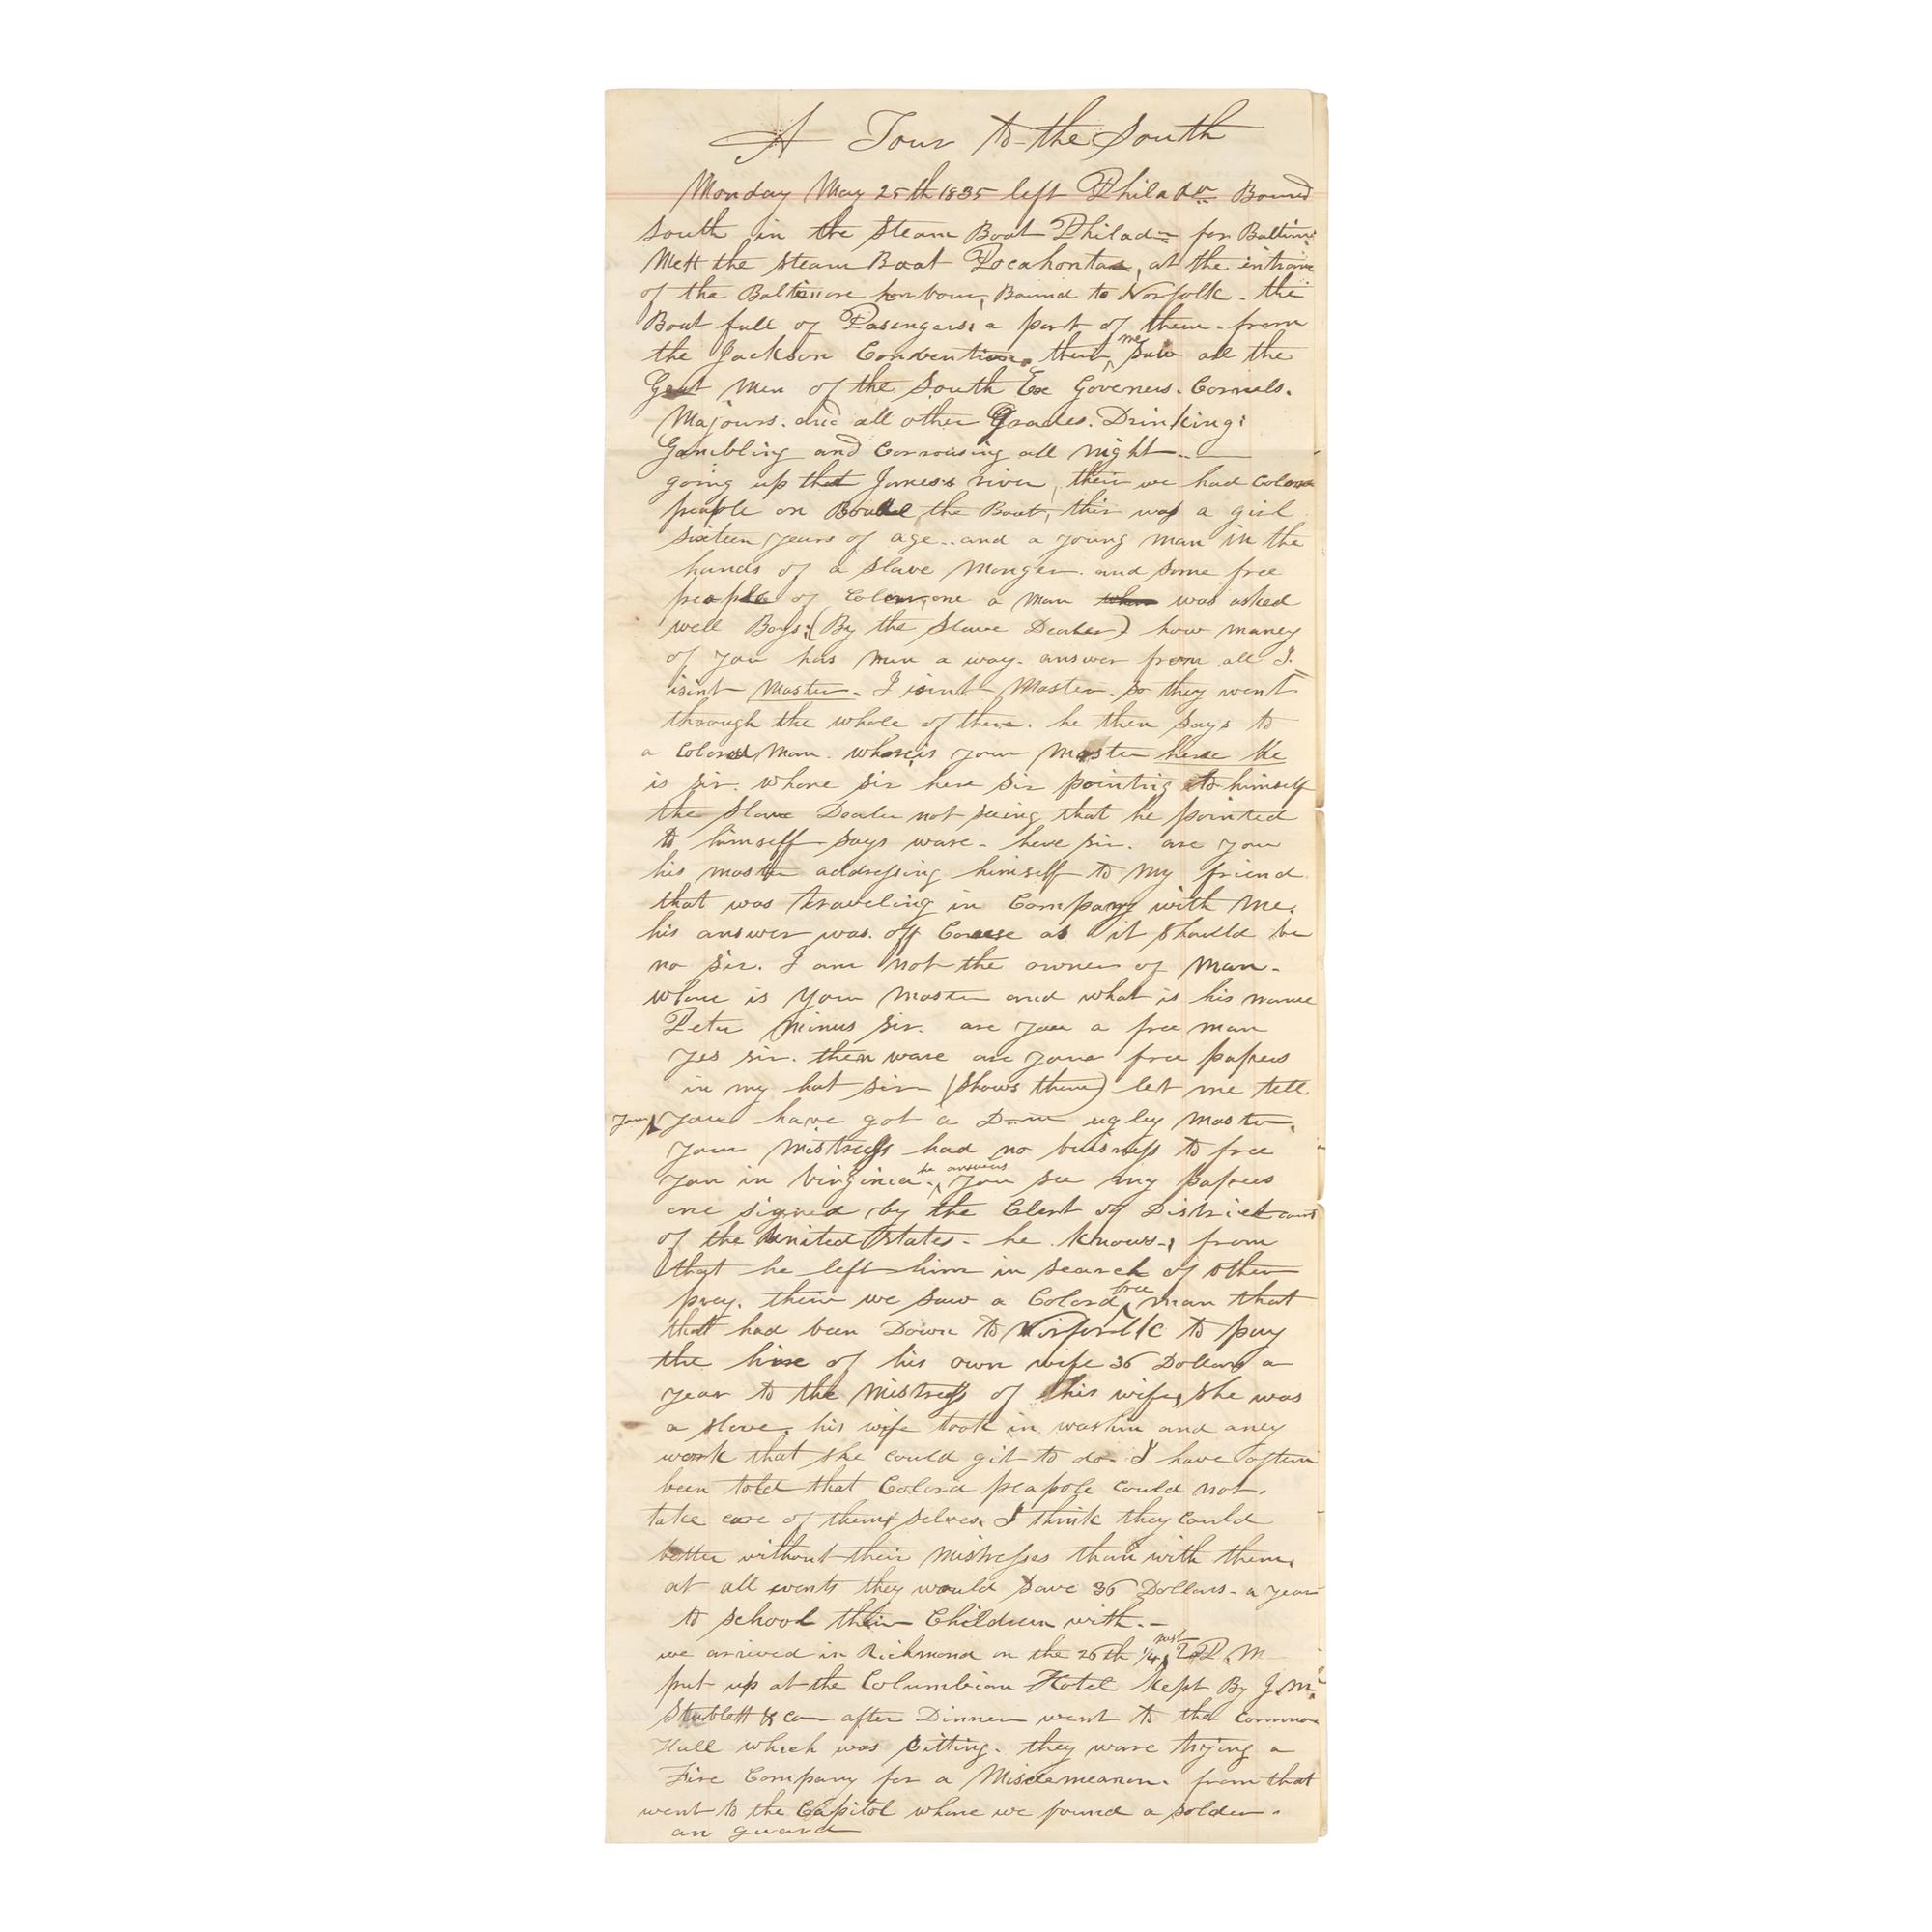 A Tour to the South
Monday May 25th 1835 left Philada Bound
South in the Steam Boat Philada for Baltim
Mett the Steam Boat Pocahontas, at the intranc
of the Baltimore harbour, Bound to Norfolk. the
Boat full of Pasengers; a part of them. from
the Jackson Convention. their, we saw all the
Great Men of the South Ex Goveners. Cornels.
Majours. and all other Grades. Drinking;
Gambling and Corrousing all night..
going up that James's river, their we had Colord
peaple on Board the Boat, this was a girl
sixteen years of age.. and a young man in the
hands of a Slave Monger. and some free
people of Colour, one a man when was asked
well Boys; (By the Slave Dealer) how maney
of you has run a way. answer from all I.
isint Master. I isint Master. so they went
through the whole of them. he then says to
a Colored Man. where is your Master here he
is sir. whare sir here sir pointing to himself
the Slave Dealer not seeing that he pointed
to himself says ware. here sir. are you
his master addressing himself to my friend
that was traveling in Company with me.
his answer was. off Course as it should be
no sir. I am not the owner of Man.
whare is your Master and what is his name
Peter Minus sir. are you a free man
yes sir. then ware are your free papers
in my hat sir (shows them) let me tell
you you have got a D..m ugley Master,
your Mistress had no buisness to free
you in Virginia. he answers you see my papers
one signed by the Clert of District court
of the United States. he knows., from
that he left him in search of other
prey. their we saw a Colord free man that
that had been Down to Norfollk to pay
the hire of his own wife 36 Dollars a
year to the Mistress of his wife, she was
a slave. his wife took in washin and aney
work that she could git to do. I have oftein
been told that Colord peapole could not.
take care of them selves. I think they could
better without their Mistresses than with them,
at all events they would save 36 Dollars. a year
to school their Children with.
we arrived in Richmond on the 26th 1/4 past 2 P.M
put up at the Columbian Hotel kept By J. M.
Stublett & co after Dinner went to the common
Hall which was sitting. they ware trying a
Fire Company for a Misdemeanon. from that
went to the Capitol whare we found a solder.
an guard